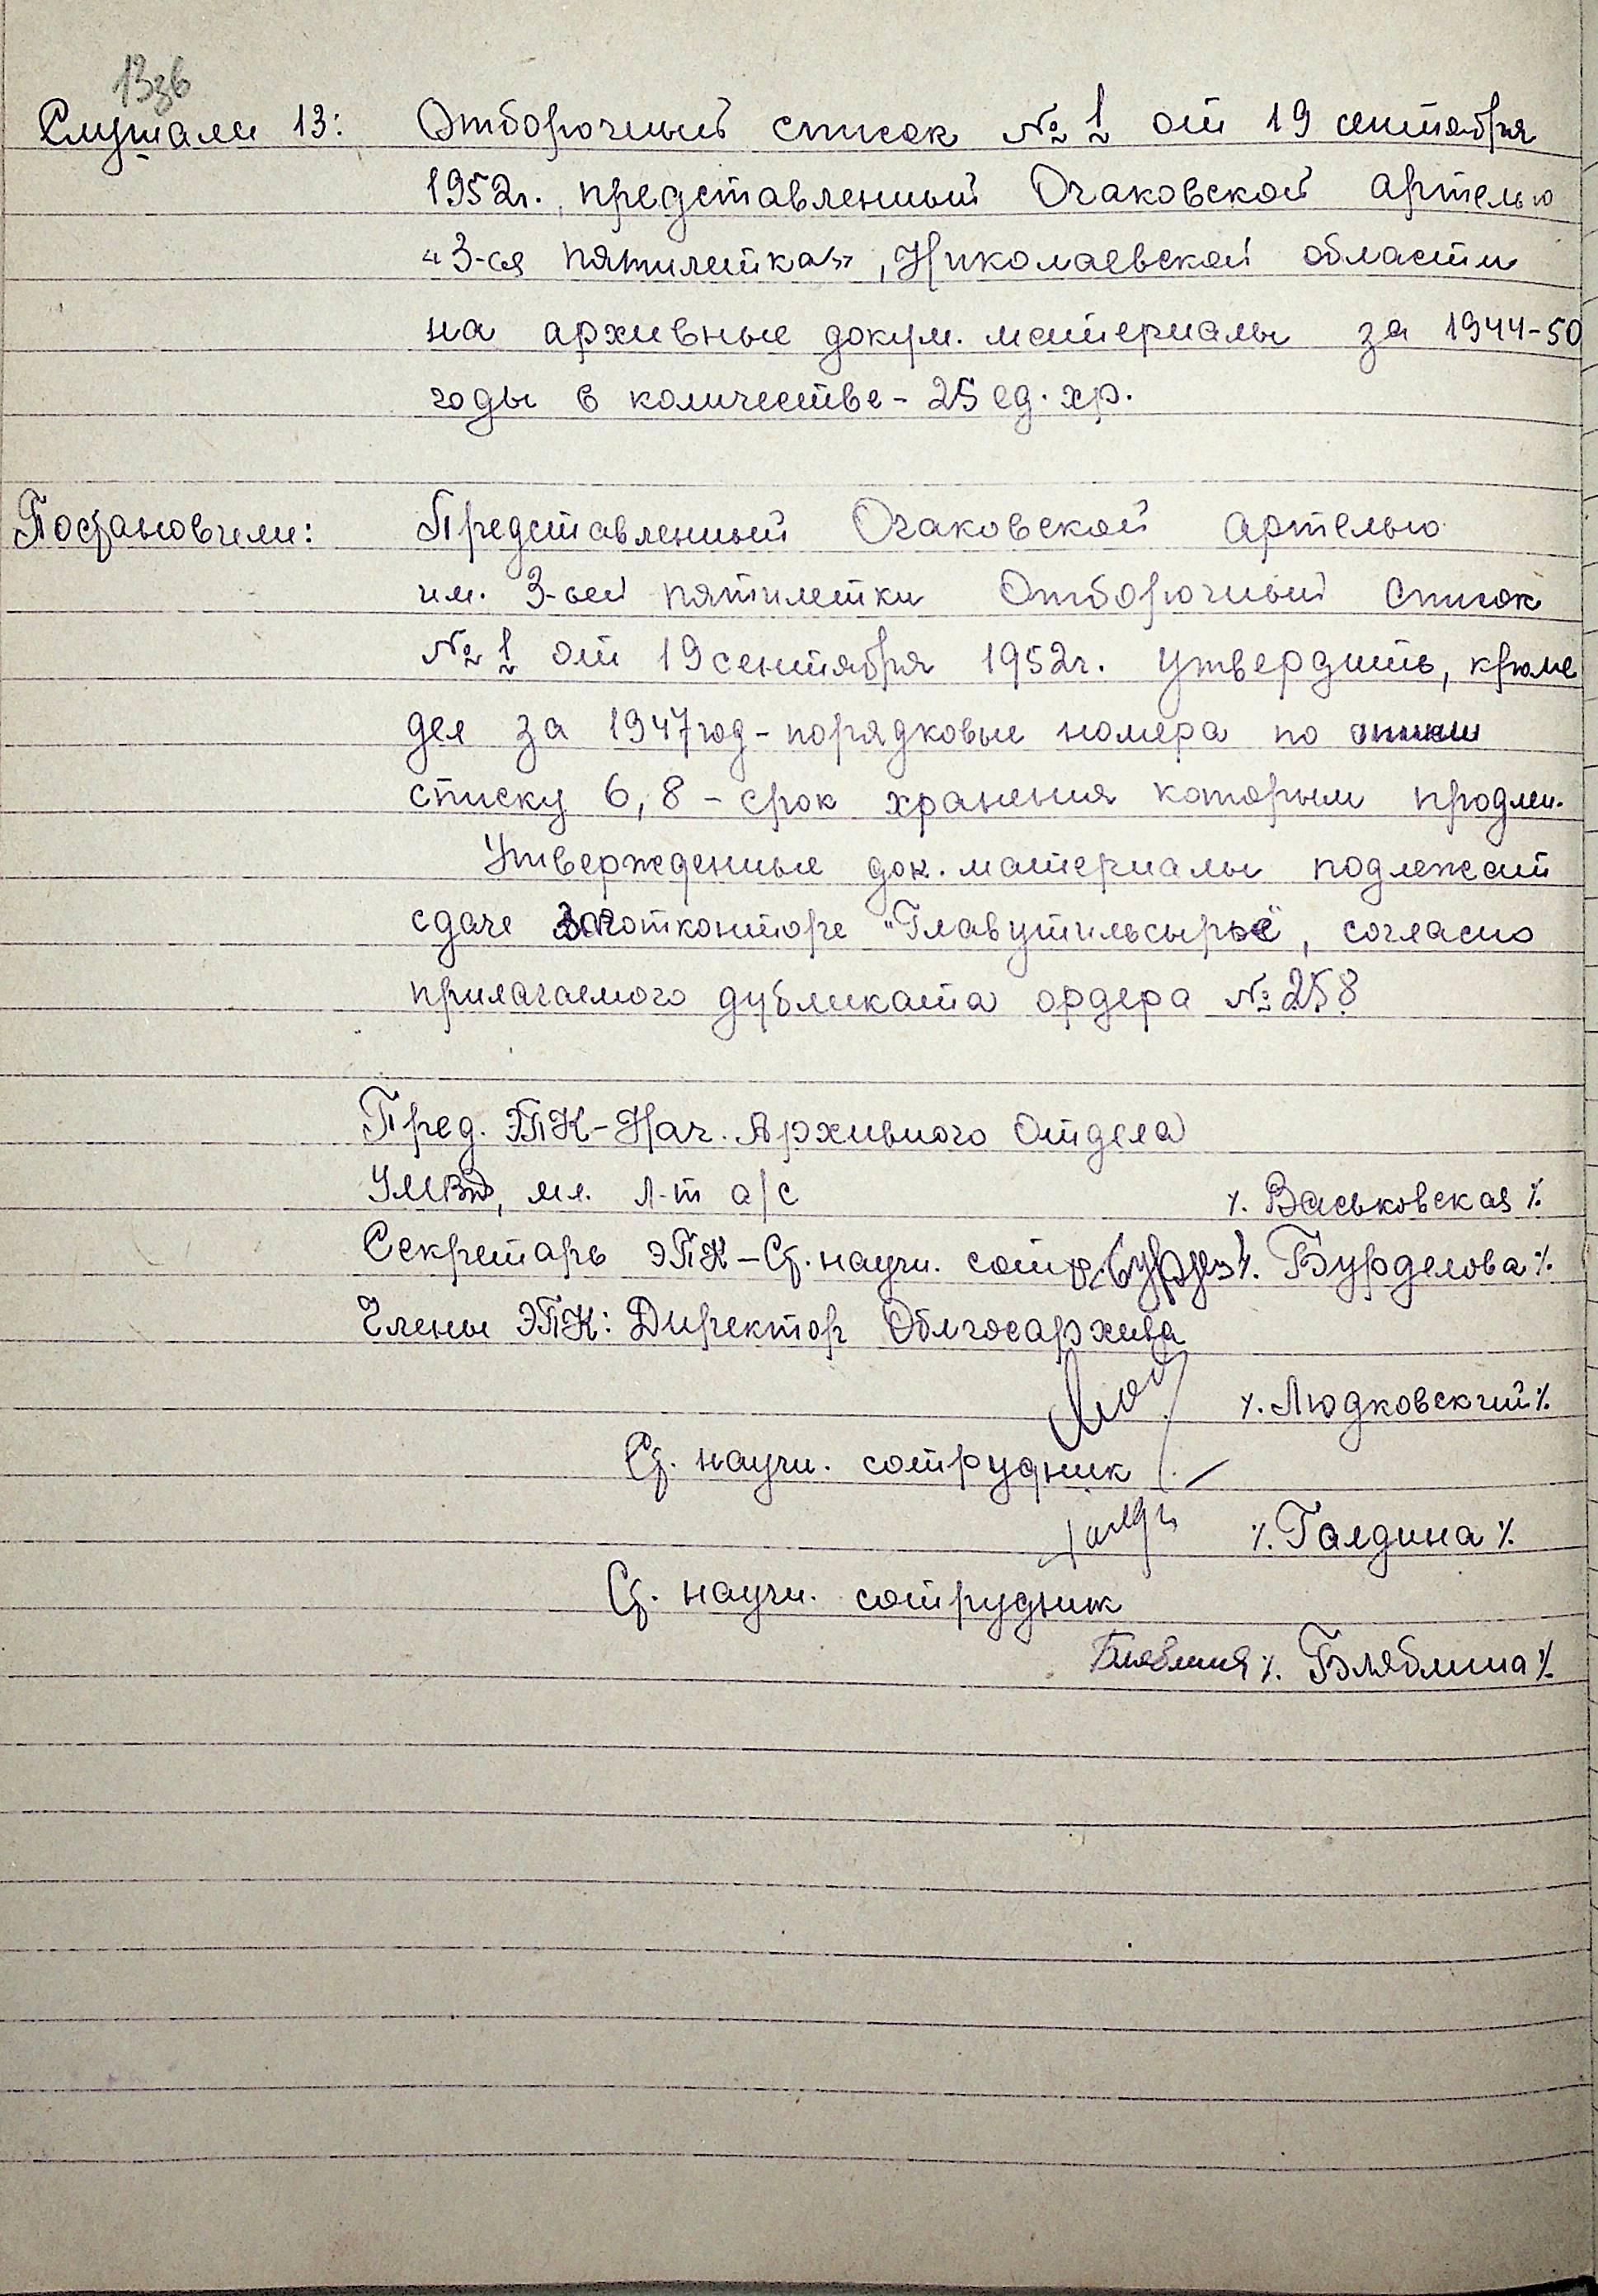 13зв
Слушали 13: Отборочный список № 1 от 19 сентября
1952г., представленный Очаковской артелью
"3-ая пятилетка", Николаевской области
на архивные докум. материалы за 1944-50
годы в количестве - 25 ед. хр.
Постановили: Представленный Очаковской артелью
им. 3-ьей пятилетки Отборочный список
№ 1 от 19 сентября 1952г. утвердить, кроме
дел за 1947 год - порядковые номера по
списку 6, 8 - срок хранения которым продлен.
Утвержденные док. материалы подлежат
сдаче Заготконторе "Главутильсырье", согласно
прилагаемого дубликата ордера № 258
Пред. ЭПК - Нач. Архивного Отдела
УМВД, мл. л-т а/с /. Васьковская /.
Секретарь ЭПК - Ст. научн. сотр. /. Бурделова /.
Члены ЭПК: Директор Облгосархива
/. Людковский /.
Ст. научн. сотрудник
/. Галдина /.
Ст. научн. сотрудник
Бляблина /. Бляблина /.